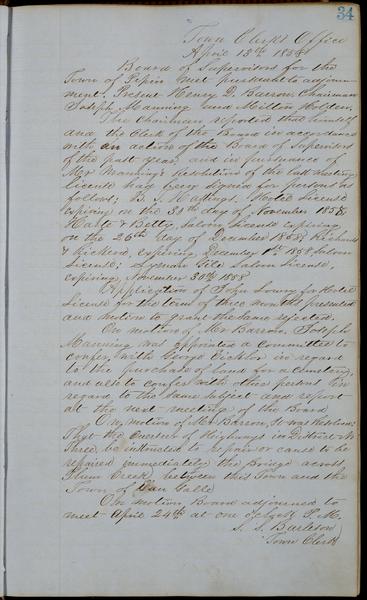 34
Town Clerk's Office
April 13th 1858
Board of Supervisors for the
Town of Pepin met pursuant to adjourn-
ment. Present Henry D. Barron, Chairman
Joseph Manning and Milton Holden.
The Chairman reported that himself
and the Clerk of the Board in accordance
with an action of the Board of Supervisors
of the past year and in pursuance of
Mr Manning's Resolutions of the last meeting
license had been signed for persons as
follows; B. F. Hastings, Hotel License
expiring on the 31st day of November 1858,
& Betty, Saloon License expiring
on the 26th day of December 1858; Richards
& expiring December 1st 1858 Saloon
License; Lyman Saloon License
expiring November 30th 1858
Application of John Lowry for Hotel
License for the term of three months presented
and motion to grant the same rejected.
On motion of Mr Barron, Joseph
Manning was appointed a committee to
confer with George in regard
to the purchase of land for a cemetery,
and also to confer with other persons in
regard to the same subject and report
at the next meeting of the Board
On motion of Mr Barron, it was Resolved;
That the Overseer of Highways in District No
Three be instructed to repair or cause to be
repaired immediately the Bridge across
Plum Creek between this Town and the
Town of Galle
On motion Board adjourned to
meet April 24th at one o'clock P.M.
S. S. Burleson
Town Clerk